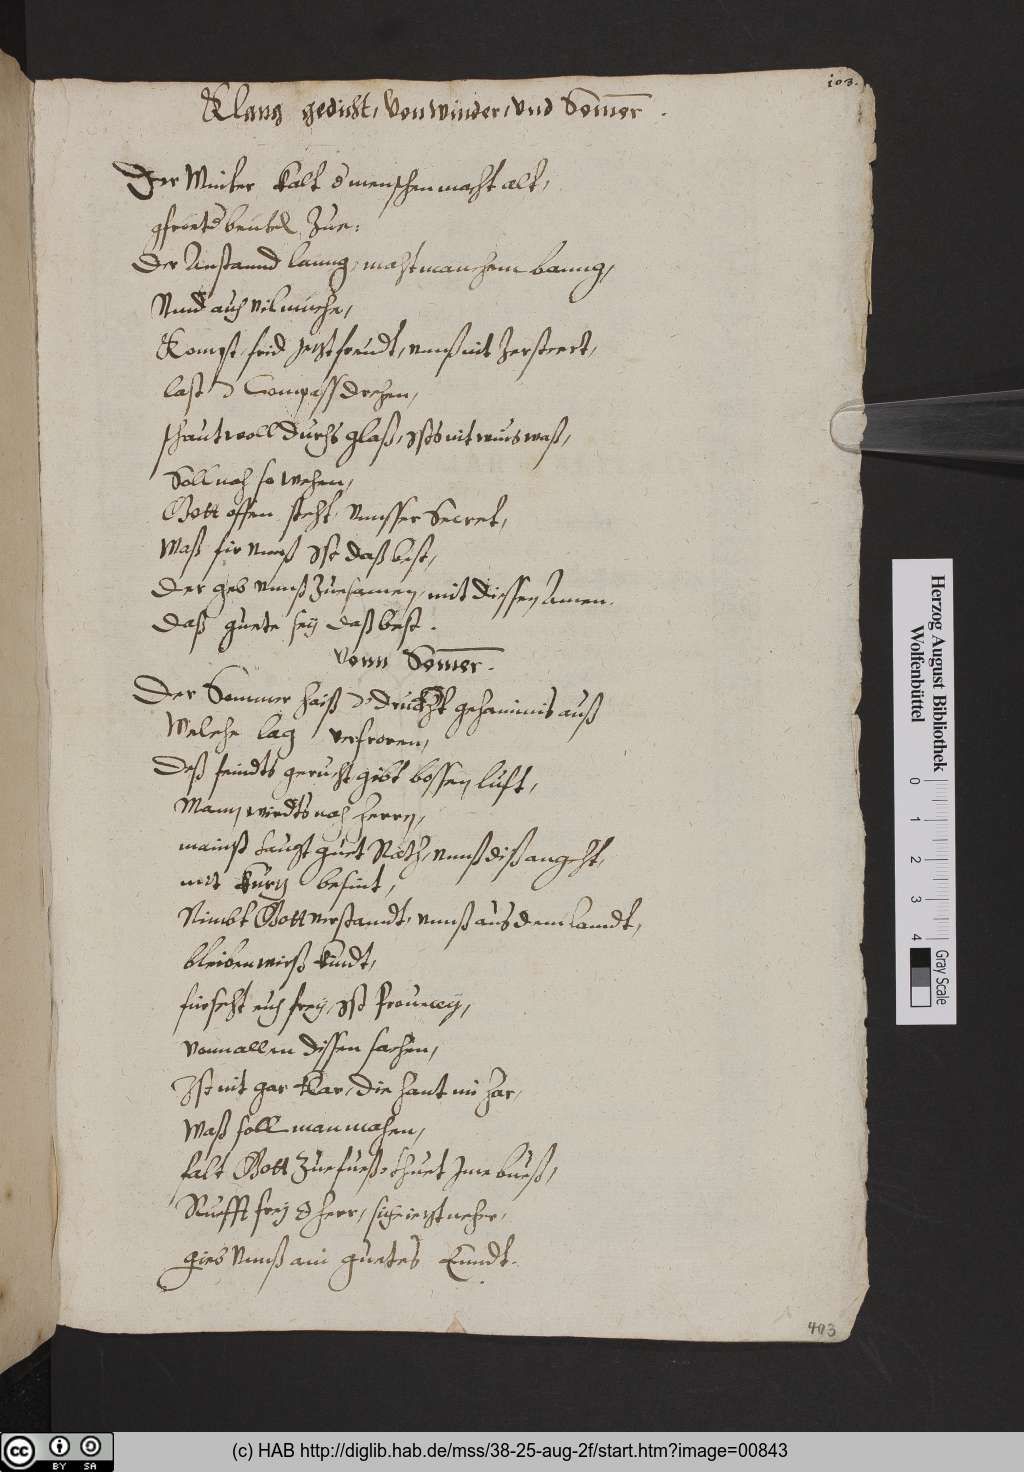 103.
Klang gedicht, Von Winder, und Somer.
Der Winter kalt d menschen macht alt,
gfriert d beutel Zue:
Der Anstannd lanng, macht manchem banng,
Unnd auch vil muehe,
Kompst frid jezt freudt, unnß nit Zersteert,
last d Compass drehen,
schaut woll durchs glaß, Ists nit was,
Soll noch so wehen,
Gott offen steht, Unnsser Secret,
Waß für Unnß Ist daß best,
Der geb Unnß Zuesamen, mit dissen Amen.
Daß guete sey daß best.
Vonn Somer.
Der Sommer haiß d druckht gehaimnis auß
Welche lag verfroren,
Deß feindts gerucht gibt bossen lufft,
Mann wirdts noch herrn,
mainst taugt guet Rath, Unnß diß angeht,
mit kurz besint,
Nimbt Gott verstandt, unnß aus dem Landt,
bleiben wirß kindt,
fürseht euch frey, Ist
vonn allen dissen sachen,
Ist nit gar klar, die haut har,
Waß soll man machen,
falt Gott Zue fueß, thuet Ime bueß,
Ruefft frey d herr, sich iezt neher,
gieb Unnß ain guetes Enndt.
403
Herzog August Bibliothek
Wolfenbüttel
0 1 2 3 4
Gray Scale
cc BY SA
(c) HAB http://diglib.hab.de/mss/38-25-aug-2f/start.htm?image=00843